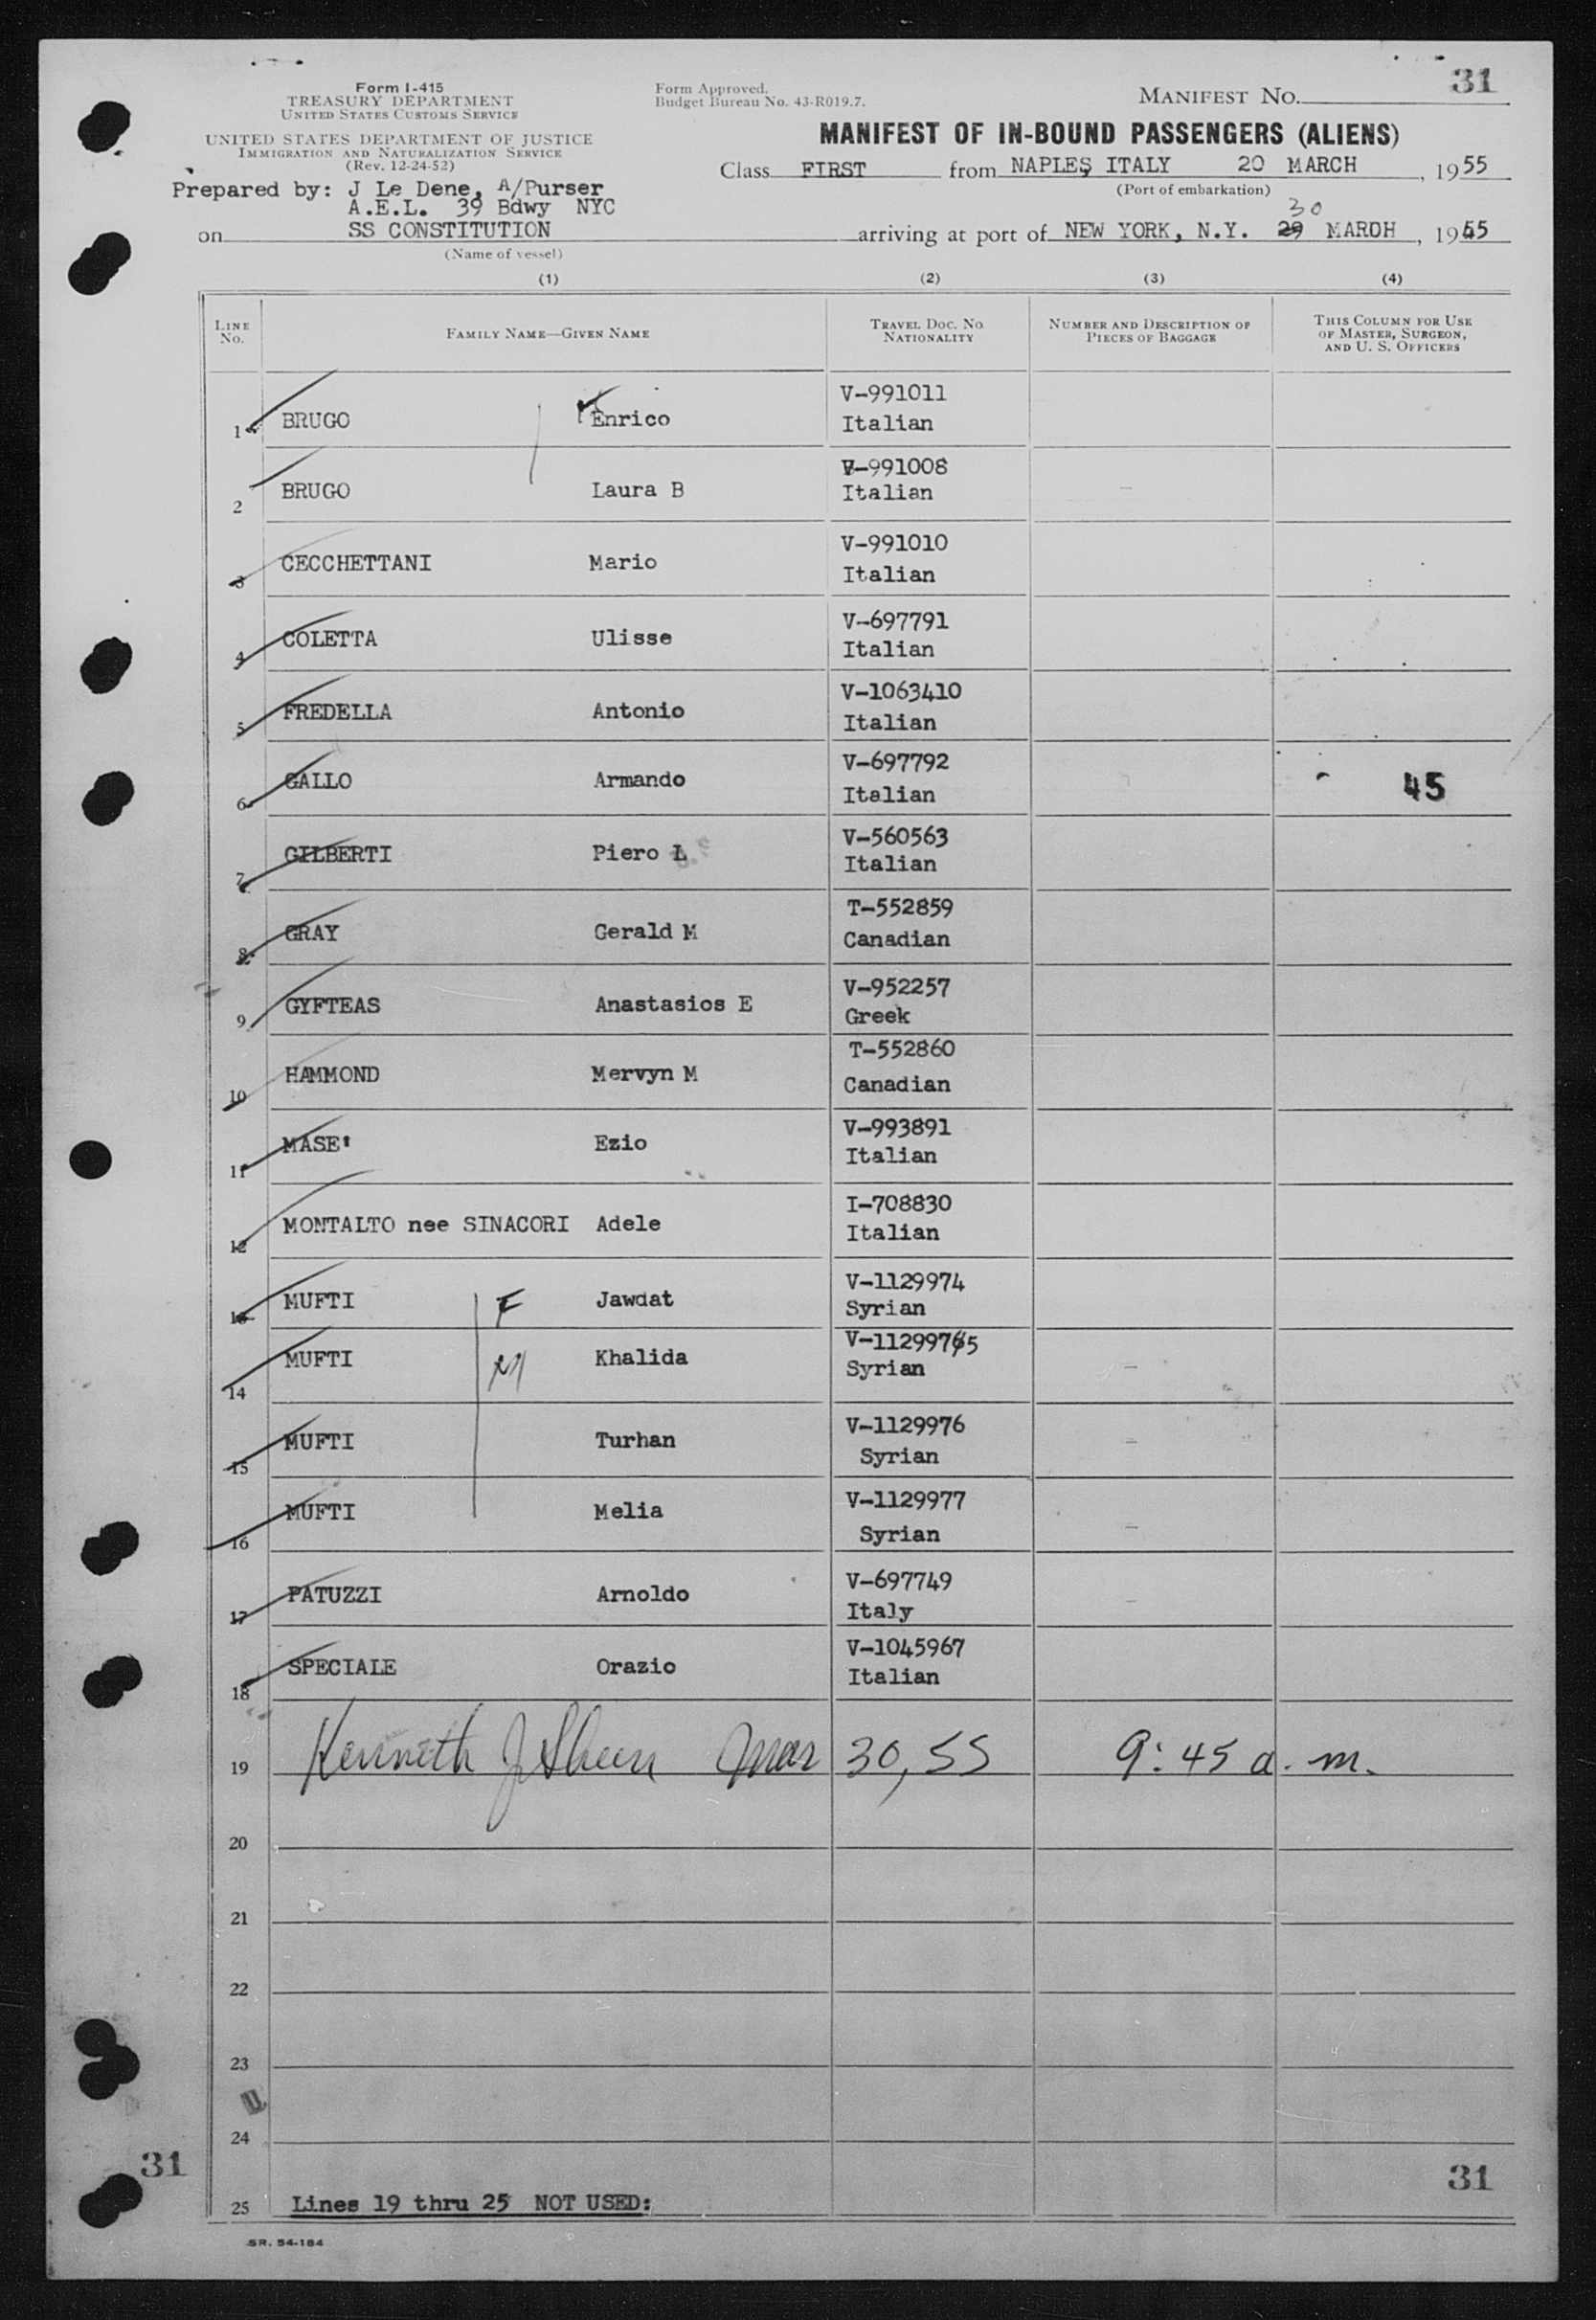 31
Form I-415
TREASURY DEPARTMENT
UNITED STATES CUSTOMS SERVICE
UNITED STATES DEPARTMENT OF JUSTICE
IMMIGRATION AND NATURALIZATION SERVICE
(Rev. 12-24-52)
Form Approved.
Budget Bureau No. 43-R019.7.
MANIFEST No.
MANIFEST OF IN-BOUND PASSENGERS (ALIENS)
Class FIRST from NAPLES ITALY 20 MARCH, 1955
(Port of embarkation)
Prepared by: J Le Dene, A/Purser
A.E.L. 39 Bdwy NYC
30
on SS CONSTITUTION arriving at port of NEW YORK, N.Y. 29 MARCH, 1955
(Name of vessel)
(1) (2) (3) (4)
LINE No. FAMILY NAME—GIVEN NAME TRAVEL DOC. No. NATIONALITY NUMBER AND DESCRIPTION OF PIECES OF BAGGAGE THIS COLUMN FOR USE OF MASTER, SURGEON, AND U. S. OFFICERS
1 BRUGO Enrico V-991011 Italian
2 BRUGO Laura B V-991008 Italian
3 CECCHETTANI Mario V-991010 Italian
4 COLETTA Ulisse V-697791 Italian
5 FREDELLA Antonio V-1063410 Italian
6 GALLO Armando V-697792 Italian 45
7 GILBERTI Piero L V-560563 Italian
8 GRAY Gerald M T-552859 Canadian
9 GYFTEAS Anastasios E V-952257 Greek
10 HAMMOND Mervyn M T-552860 Canadian
11 MASE' Ezio V-993891 Italian
12 MONTALTO nee SINACORI Adele I-708830 Italian
13 MUFTI F Jawdat V-1129974 Syrian
14 MUFTI M Khalida V-1129975 Syrian
15 MUFTI Turhan V-1129976 Syrian
16 MUFTI Melia V-1129977 Syrian
17 PATUZZI Arnoldo V-697749 Italy
18 SPECIALE Orazio V-1045967 Italian
19 Kenneth J Sheen Mar 30, 55 9:45 a.m.
20
21
22
23
24
31
31
25 Lines 19 thru 25 NOT USED:
SR. 54-184